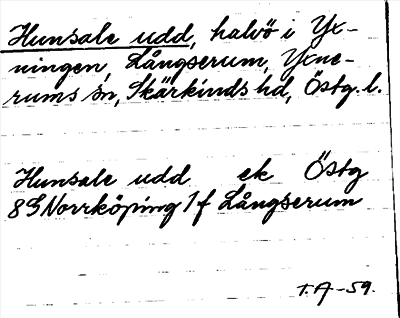 Hunsale udd, halvö i Yx-
ningen, Långserum, Yxne-
rums sn, Skärkinds hd, Östg. l.
Hunsale udd ek Östg
8G Norrköping 1 f Långserum
T.A -59.